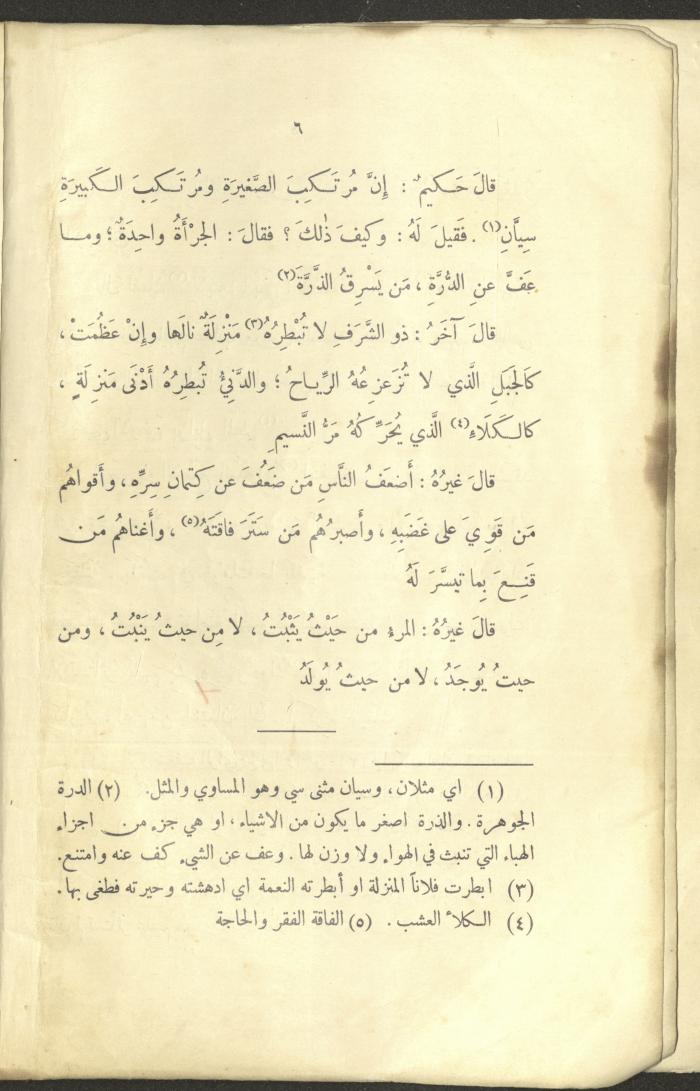 ٦
قالَ حَكيمٌ : إِنَّ مُرتَكِبَ الصَّغيرَةِ ومُرتَكِبَ الكَبيرَةِ
سِيَّانِ(١) . فَقيلَ لَهُ : وكيفَ ذٰلكَ ؟ فقالَ : الجرْأَةُ واحِدَةٌ ؛ ومـا
عَفَّ عنِ الدُّرَّةِ ، مَن يَسْرِقُ الذَّرَّةَ(٢)
قالَ آخَرُ : ذو الشَّرَفِ لا تُبْطِرُهُ(٣) مَنْزِلَةٌ نالَها وإِنْ عَظُمَتْ ،
كَالجَبَلِ الَّذي لا تُزَعزِعُهُ الرِّيـاحُ ؛ والدَّنِيُّ تُبطِرُهُ أَدْنَى مَنزِلَةٍ ،
كالكَلَاءِ(٤) الَّذي يُحَرِّكُهُ مَرُّ النَّسيمِ
قالَ غيرُهُ : أَضعَفُ النَّاسِ مَن ضَعُفَ عن كِتمانِ سِرِّهِ ، وأَقواهُم
مَن قَوِيَ على غَضَبِهِ ، وأَصبرُهُم مَن سَتَرَ فاقَتَهُ(٥) ، وأَغناهُم مَن
قَنِـعَ بِما تيسَّرَ لَهُ
قالَ غيرُهُ : المرءُ من حَيْثُ يَثْبُتُ ، لا مِن حيثُ يَنْبُتُ ، ومن
حيثُ يُوجَدُ ، لا من حيثُ يُولَدُ
(١) اي مثلان ، وسيان مثنى سي وهو المساوي والمثل . (٢) الدرة
الجوهرة . والذرة اصغر ما يكون من الاشياء ، او هي جزء من اجزاء
الهباء التي تنبث في الهواء ولا وزن لها . وعف عن الشيء كف عنه وامتنع .
(٣) ابطرت فلاناً المنزلة او أبطرته النعمة اي ادهشته وحيرته فطغى بها .
(٤) الكلأ العشب . (٥) الفاقة الفقر والحاجة